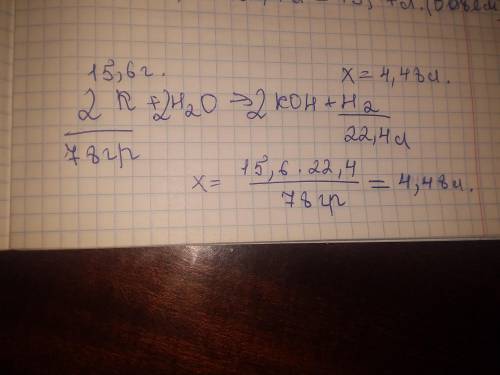 15,6г. x = 4,48л.
2K + 2H₂O → 2KOH + H₂
78гр 22,4л
x = 15,6 · 22,4 / 78гр = 4,48л.